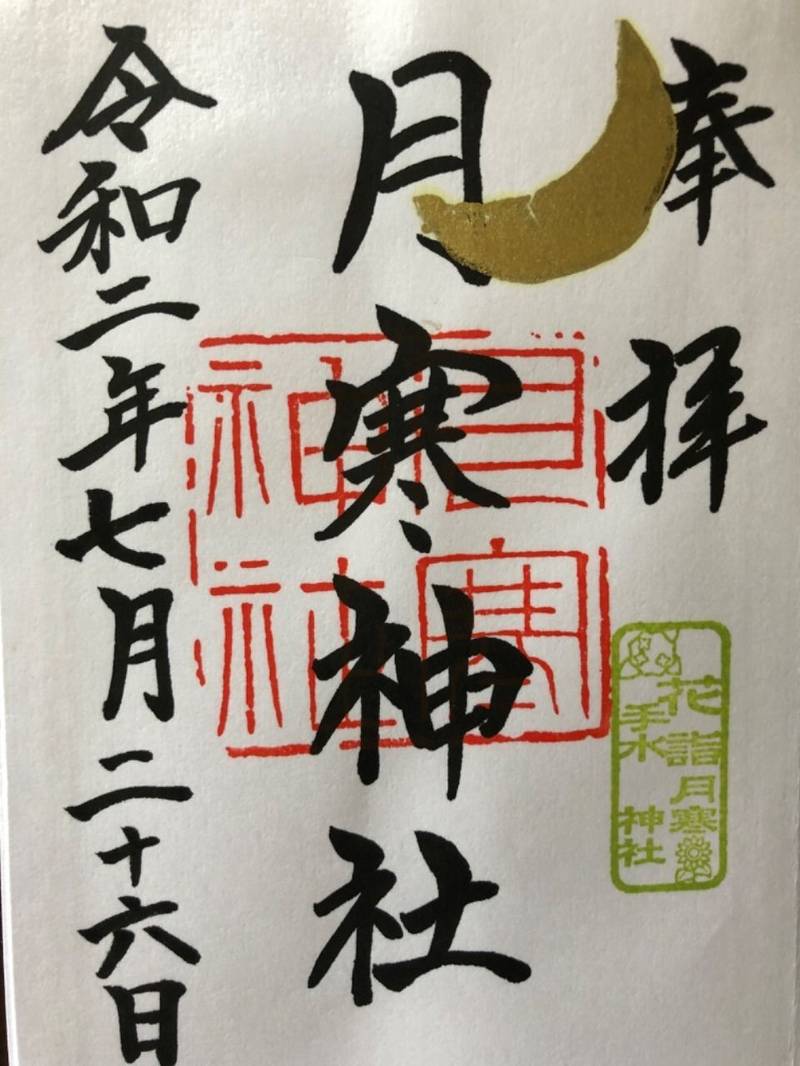 奉拝
月寒神社
令和二年七月二十六日
月寒
神社
花詣月寒
手水 神社